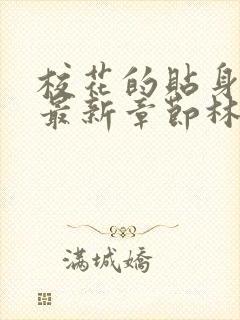 校花的貼身
最新章節林
滿城嬌